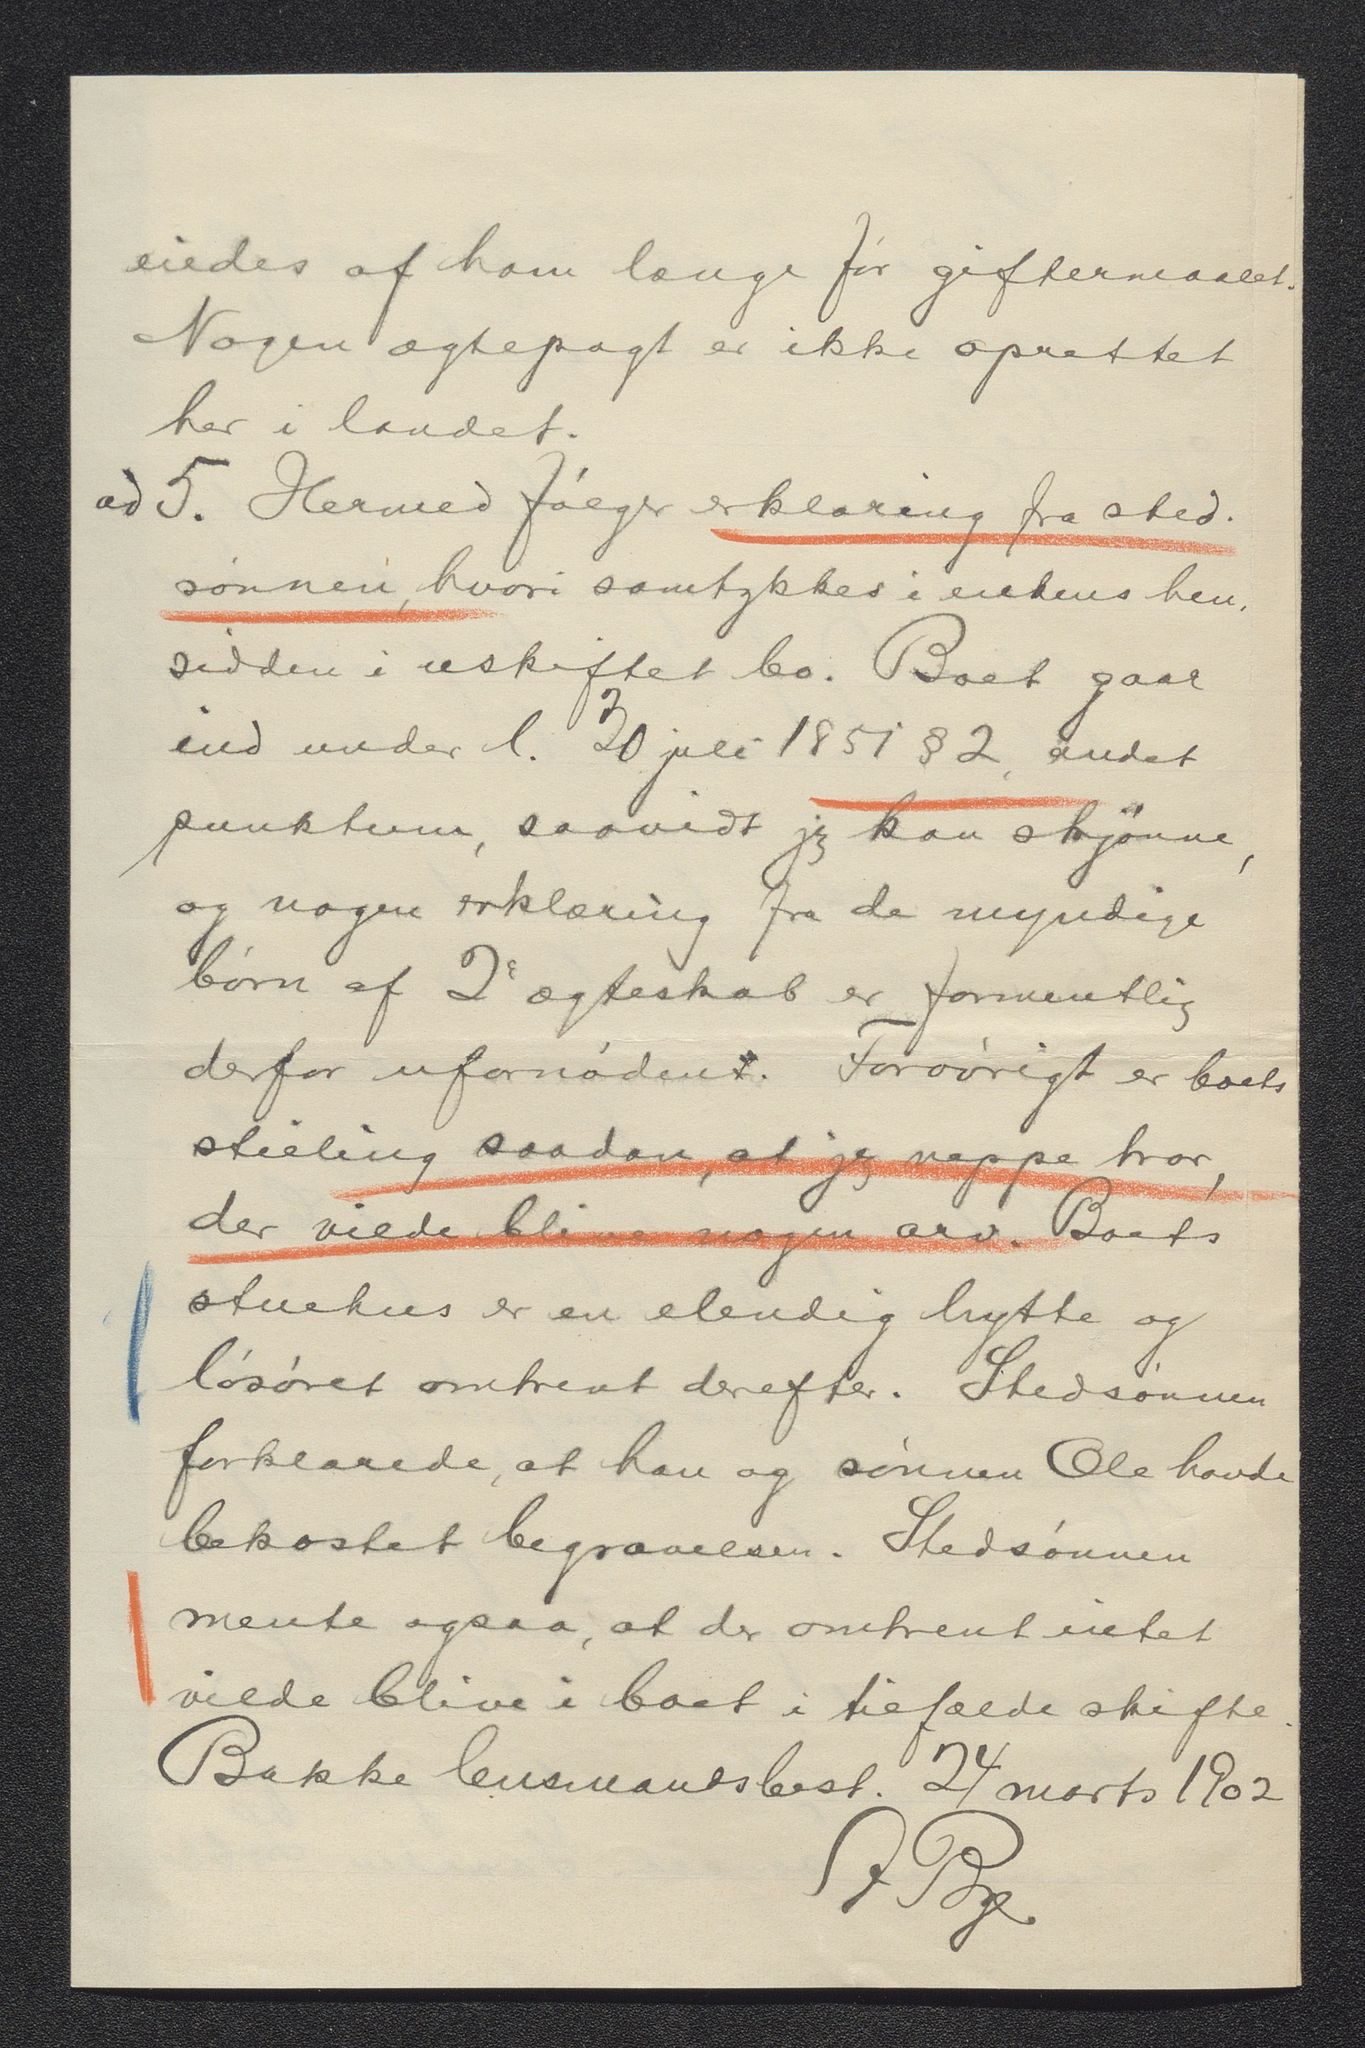 eiedes af ham længe før giftermaalet.
Nogen ægtepagt er ikke oprettet
her i landet.
ad 5. Hermed følger erklæring fra sted-
sønnen, hvori samtykkes i enkens hen-
sidden i uskiftet bo. Boet gaar
ind under l. 30 juli 1851 § 2, andet
punktum, saavidt jeg kan skjønne,
og nogen erklæring fra de myndige
børn af 2t ægteskab er formentlig
derfor ufornøden. Forøvrigt er boets
stilling saadan, at jeg neppe tror,
der vilde blive nogen arv. Boets
stuehus er en elendig hytte og
løsøret omtrent derefter. Stedsønnen
forklarede, at han og sønnen Ole havde
bekostet begravelsen. Stedsønnen
mente ogsaa, at der omtrent intet
vilde blive i boet i tilfælde skifte.
Bakke lensmandsbest. 24 marts 1902
Bye